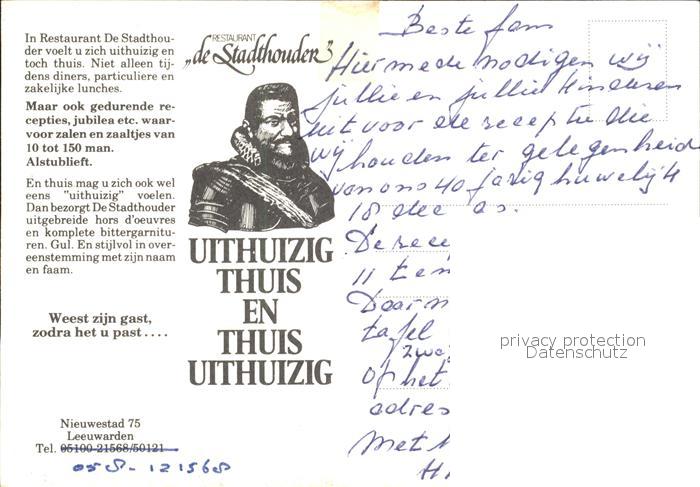 In Restaurant De Stadthou-
der voelt u zich uithuizig en
toch thuis. Niet alleen tij-
dens diners, particuliere en
zakelijke lunches.
Maar ook gedurende re-
cepties, jubilea etc. waar-
voor zalen en zaaltjes van
10 tot 150 man.
Alstublieft.
En thuis mag u zich ook wel
eens "uithuizig" voelen.
Dan bezorgt De Stadthouder
uitgebreide hors d'oeuvres
en komplete bittergarnitu-
ren. Gul. En stijlvol in over-
eenstemming met zijn naam
en faam.
Weest zijn gast,
zodra het u past....
Nieuwestad 75
Leeuwarden
Tel. 05100-21568/50121
058-121568
RESTAURANT
„de Stadthouder”
UITHUIZIG
THUIS
EN
THUIS
UITHUIZIG
Beste fam
Hiermede nodigen wij
jullie en jullie kinderen
uit voor de receptie die
wij houden ter gelegenheid
van ons 40 jarig huwelijk
18 dec as.
De rece
11 t en
Daarn
tafel
zwe
Op het
adres
Met
H
privacy protection
Datenschutz